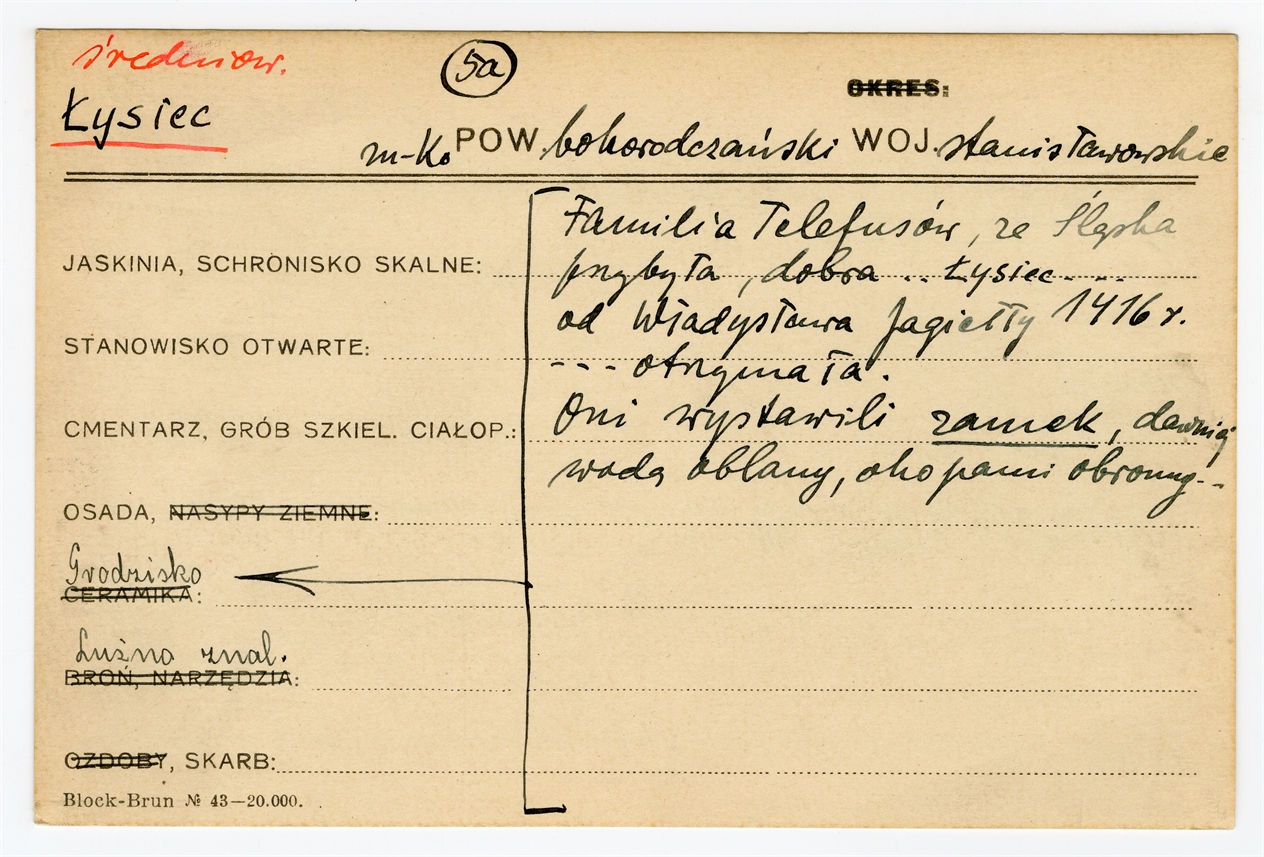 średniow.
5a
OKRES:
Łysiec
m-ko POW. bohorodczański WOJ. stanisławowskie
Familia Telefusów, ze Śląska
JASKINIA, SCHRONISKO SKALNE:
przybyła, dobra .. Łysiec - - -
od Władysława Jagiełły 1416 r.
STANOWISKO OTWARTE:
- - - otrzymała.
Oni wystawili zamek, dawniej
CMENTARZ, GRÓB SZKIEL. CIAŁOP.:
wodą oblany, okopami obronny - -
OSADA, NASYPY ZIEMNE:
Grodzisko
CERAMIKA:
Luźno znal.
BROŃ, NARZĘDZIA:
OZDOBY, SKARB:
Block-Brun № 43—20.000.